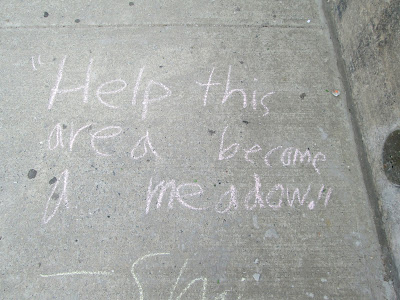 "Help this
area become
A meadow."